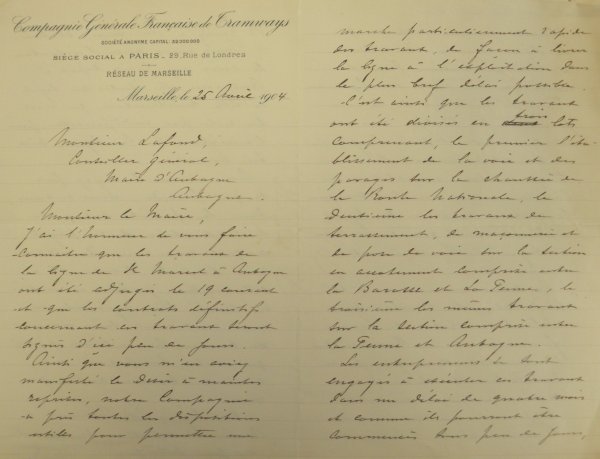 Compagnie Générale Française de Tramways
SOCIÉTÉ ANONYME CAPITAL
SIÈGE SOCIAL A PARIS _ 29, Rue de Londres
RÉSEAU DE MARSEILLE
Marseille, le 25 Avril 1904
Monsieur Lafond,
Conseiller Général,
Maire d'Aubagne
Aubagne.
Monsieur le Maire,
J'ai l'honneur de vous faire
connaître que les travaux de
la ligne de St Marcel à Aubagne
ont été adjugés le 19 courant
et que les contrats définitifs
concernant ces travaux seront
signés d'ici peu de jours.
Ainsi que vous m'en aviez
manifesté le désir à maintes
reprises, notre Compagnie
a pris toutes les dispositions
utiles pour permettre une
marche particulièrement rapide
des travaux, de façon à livrer
la ligne à l'exploitation dans
le plus bref délai possible.
C'est ainsi que les travaux
ont été divisés en trois lots
comprenant, le premier l'éta-
blissement de la voie et des
pavages sur la chaussée de
la Route Nationale, le
deuxième les travaux de
terrassement, de maçonnerie et
de pose de voie sur la section
en accotement comprise entre
la Barasse et La Penne, le
troisième les mêmes travaux
sur la section comprise entre
la Penne et Aubagne.
Les entrepreneurs se sont
engagés à exécuter ces travaux
dans un délai de quatre mois
et comme ils pourront être
commencés sous peu de jours,